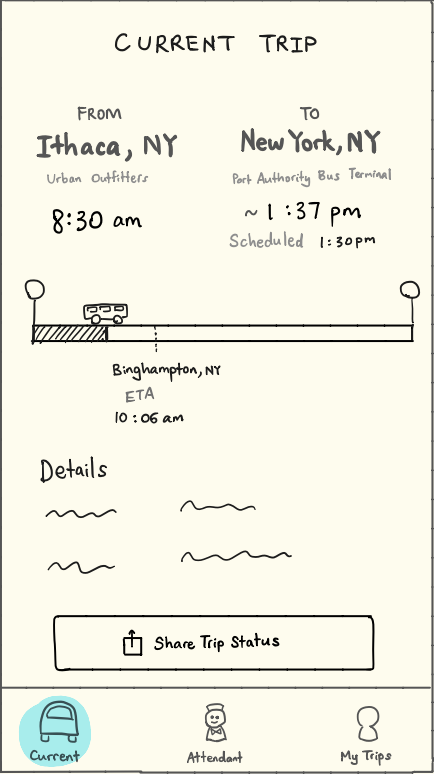 CURRENT TRIP
FROM
Ithaca, NY
Urban Outfitters
8:30 am
TO
New York, NY
Port Authority Bus Terminal
~ 1:37 pm
Scheduled 1:30pm
Binghampton, NY
ETA
10:06 am
Details
Share Trip Status
Current
Attendant
My Trips